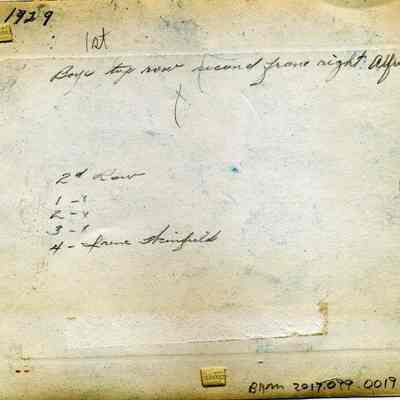 1929
1st
Boys top row second from right. Alfre
x
2d Row
1 - x
2 - x
3 - x
4 - Irene Steinfeld
BHom 2017.099.0019